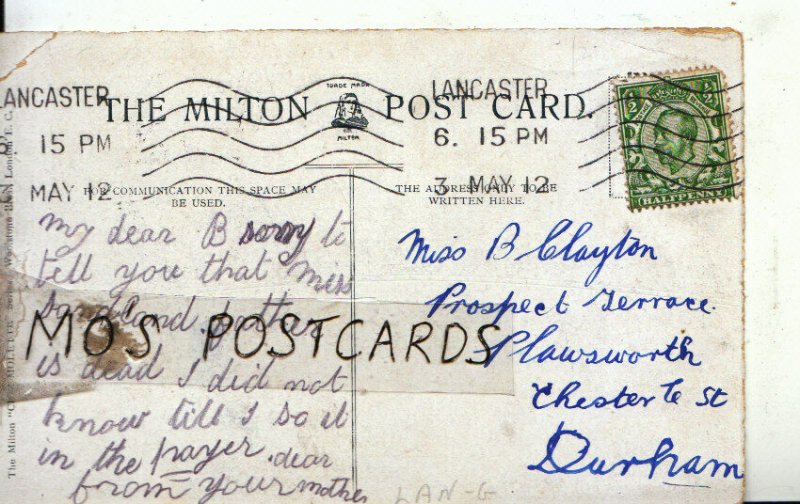 LANCASTER
15 PM
MAY 12
LANCASTER
6. 15 PM
3 MAY 12
THE MILTON POST CARD.
TRADE MARK
MILTON
HALFPENNY
FOR COMMUNICATION THIS SPACE MAY
BE USED.
THE ADDRESS ONLY TO BE
WRITTEN HERE.
My dear B sorry to
tell you that Miss
is dead I did not
know till I so it
in the payer. dear
from your mother
MOS POSTCARDS
Miss B Clayton
Prospect Terrace.
Plawsworth
Chester le St
Durham
LAN-G
The Milton
London E.C.